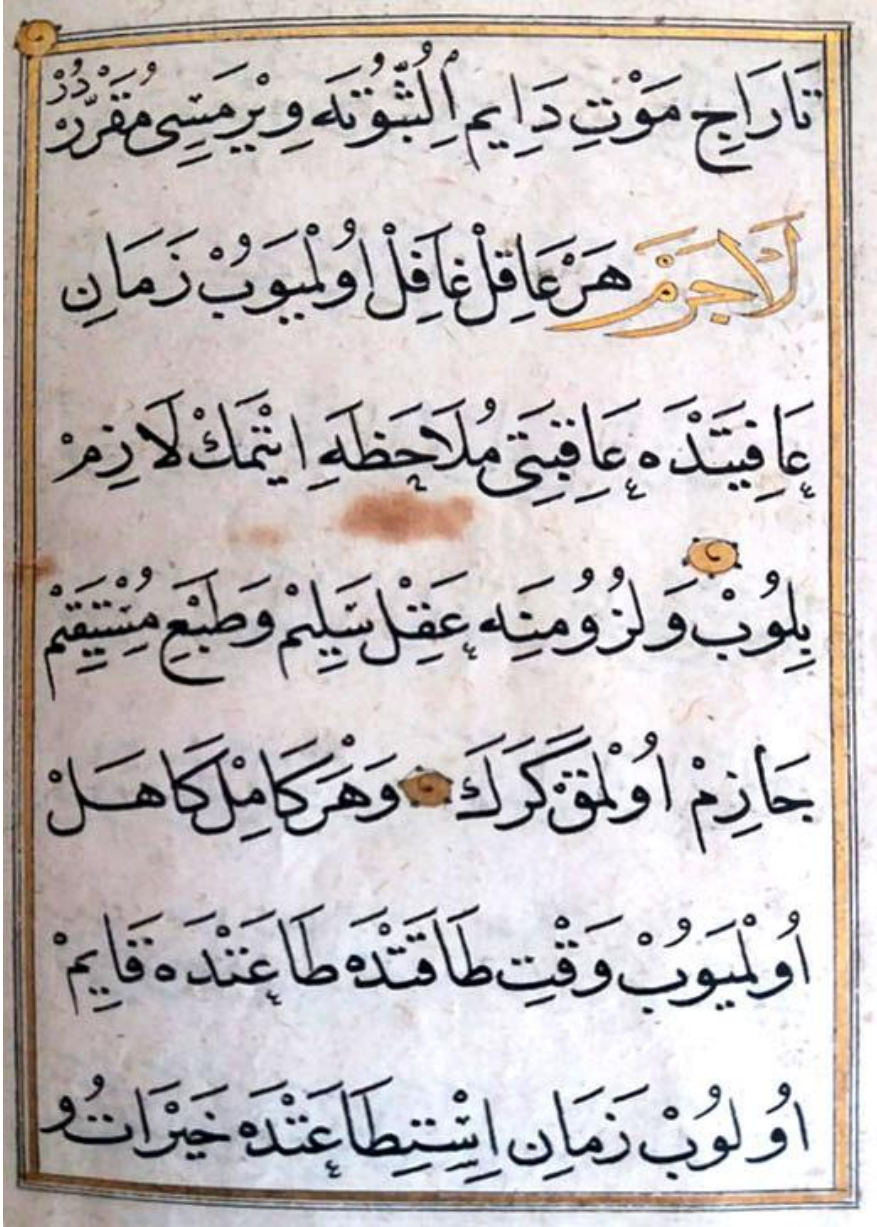 تَارَاجِ مَوْتِ دَاِيم اِلثُّبُوُتَه وِيْرمَسِى مُقَرَّرْدُرْ
لَاجَرَمْ هَرْ عَاقِلْ غَافِلْ اُولْميَوُبْ زَمَانِ
عَافِيَتْدَه عَاقِبَتِى مُلَاحَظَهِ ايتْمَكْ لَازِمْ
بِلوُبْ وَلزُومنَه عَقِلْ سَلِيمْ وَطَبْعِ مُسْتَقِيمْ
جَازِمْ اُولْمَقْ كَرَكْ وَهَرْ كَامِلْ كَاهَلْ
اُولْميَوُبْ وَقْتِ طَاقَتْدَه طَاعَتْدَه قَايِمْ
اُولوُبْ زَمَانِ اِسْتِطَاعَتْدَه خَيْرَاتُ و